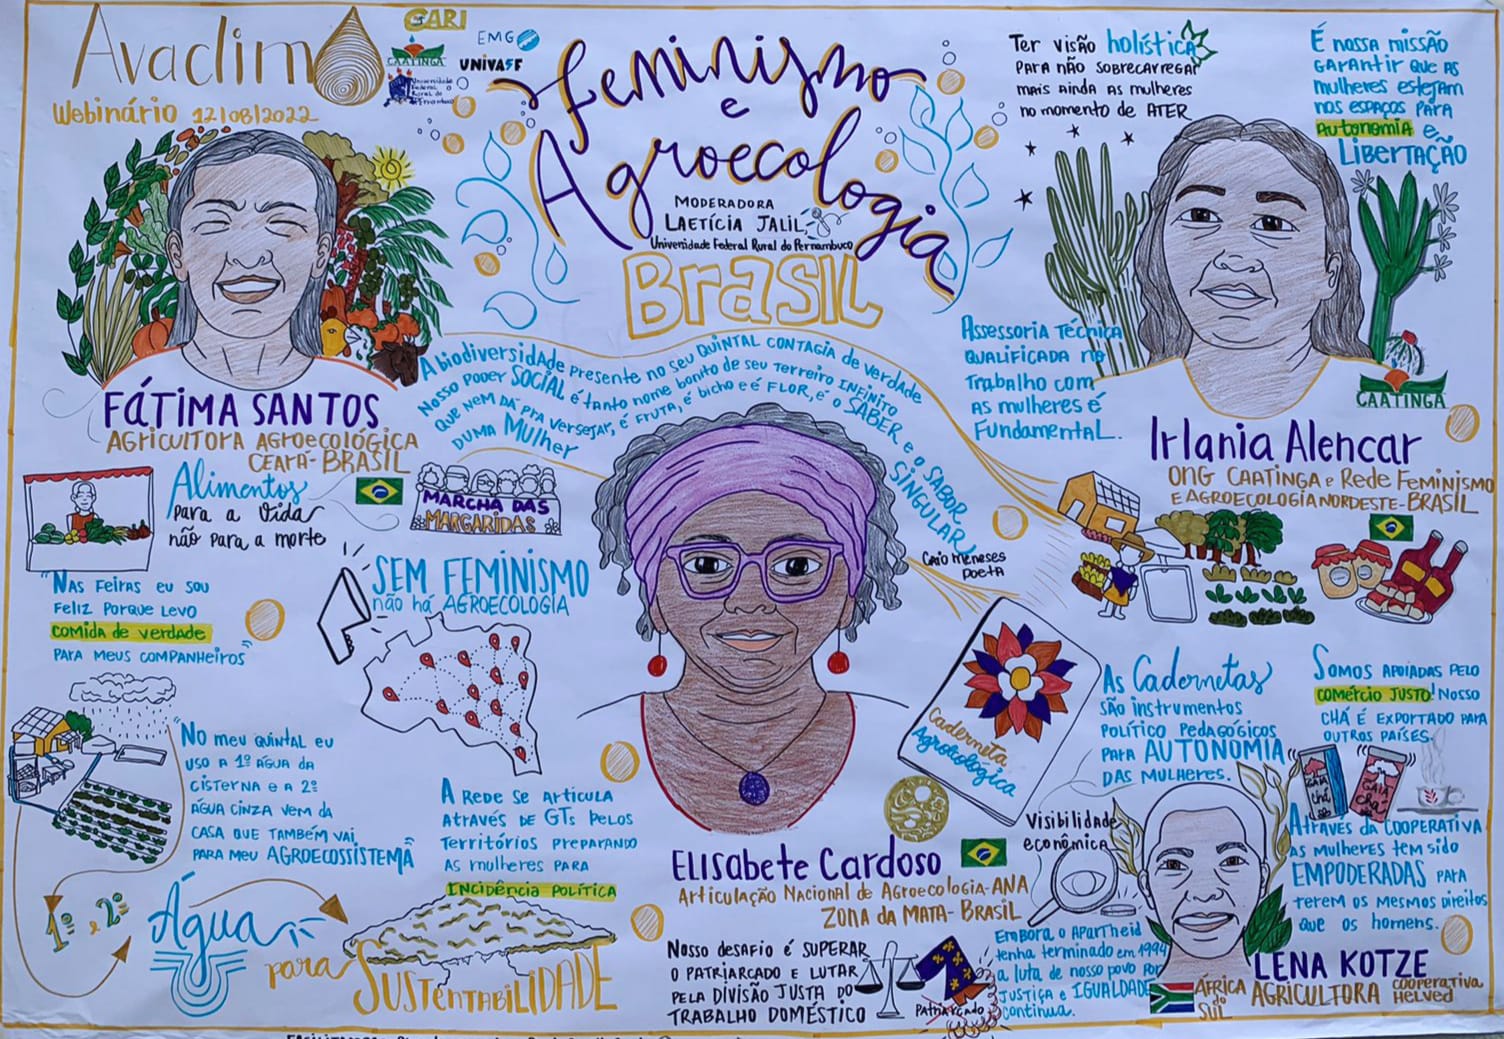 Avaclim
Webinário 12/08/2022
CARI
EMG
CAATINGA
UNIVASF
Universidade
Federal
Rural de
Pernambuco
Feminismo
e
Agroecologia
MODERADORA
LAETÍCIA JALIL
Universidade Federal Rural do Pernambuco
BRASIL
Ter visão holística
PARA NÃO SOBRECARREGAR
MAIS AINDA AS MULHERES
NO MOMENTO DE ATER
É NOSSA MISSÃO
GARANTIR QUE AS
MULHERES ESTEJAM
NOS ESPAÇOS PARA
AUTONOMIA E
LIBERTAÇÃO
FÁTIMA SANTOS
AGRICULTORA AGROECOLÓGICA
CEARÁ-BRASIL
A biodiversidade presente no seu QUINTAL CONTAGIA de verdade
Nosso poder SOCIAL é tanto nome bonito de seu Terreiro INFINITO
QUE NEM DÁ PRA VERSEJAR, É FRUTA, É bicho e é FLOR, é o SABER e o SABOR
DUMA MULHER
SINGULAR
CAIO MENESES
POETA
ASSESSORIA TÉCNICA
QUALIFICADA NO
Trabalho com
AS MULHERES É
FUNDAMENTAL.
CAATINGA
Irlania Alencar
ONG CAATINGA e Rede Feminismo
E AGROECOLOGIA NORDESTE-BRASIL
Alimentos
para a Vida
não para a morte
MARCHA DAS
MARGARIDAS
"NAS FEIRAS EU SOU
FELIZ PORQUE LEVO
COMIDA DE VERDADE
PARA MEUS COMPANHEIROS"
SEM FEMINISMO
não há AGROECOLOGIA
"NO MEU QUINTAL EU
USO A 1º ÁGUA DA
CISTERNA E A 2º
ÁGUA CINZA VEM DA
CASA QUE TAMBÉM VAI
PARA MEU AGROECOSSISTEMA
1º e 2º
Água
para
SUSTENTABILIDADE
A REDE SE ARTICULA
ATRAVÉS DE GTs PELOS
TERRITÓRIOS PREPARANDO
AS MULHERES PARA
INCIDÊNCIA POLÍTICA
ELISABETE CARDOSO
Articulação Nacional de Agroecologia-ANA
ZONA DA MATA-BRASIL
NOSSO DESAFIO É SUPERAR
O PATRIARCADO E LUTAR
PELA DIVISÃO JUSTA DO
TRABALHO DOMÉSTICO
Patriarcado
Caderneta
Agroecológica
AS Cadernetas
SÃO INSTRUMENTOS
POLÍTICO PEDAGÓGICOS
PARA AUTONOMIA
DAS MULHERES.
Visibilidade
econômica
SOMOS APOIADAS PELO
COMÉRCIO JUSTO! NOSSO
CHÁ É EXPORTADO PARA
OUTROS PAÍSES
GAIA
chá
GAIA
CHÁ
ATRAVÉS DA COOPERATIVA
AS MULHERES TEM SIDO
EMPODERADAS PARA
TEREM OS MESMOS DIREITOS
QUE OS HOMENS.
EMBORA O APARTHEID
tenha terminado em 1994
a luta de nosso povo por
JUSTIÇA e IGUALDADE
continua.
LENA KOTZE
ÁFRICA
do
SUL
AGRICULTORA
COOPERATIVA
HELVED